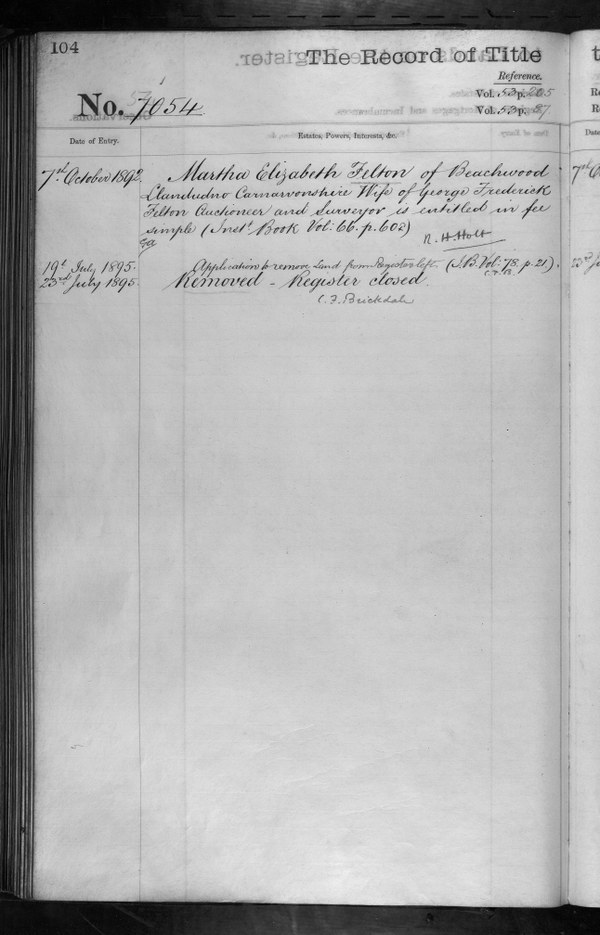 104
The Record of Title
Reference.
Vol. 53 p. 205
Vol. 53 p. 87
No. 7054
Date of Entry.
Estates, Powers, Interests, &c.
7th October 1892
Martha Elizabeth Felton of Beachwood
Llandudno Carnarvonshire Wife of George Frederick
Felton Auctioneer and Surveyor is entitled in fee
simple (Inst. Book Vol: 66. p. 602)
R. H. Holt
19th July 1895.
Application to remove Land from Register left. (I.B. Vol: 78 p. 21).
23rd July 1895.
Removed - Register closed.
C. F. Brickdale